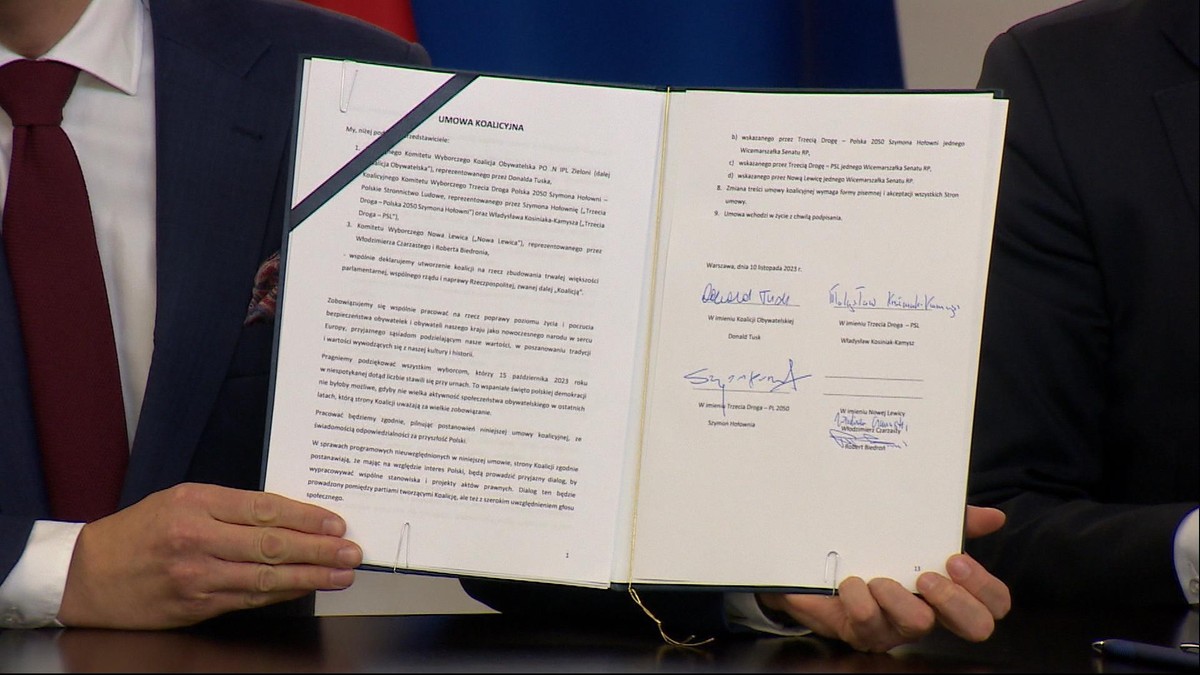 UMOWA KOALICYJNA
My, niżej
1.
Komitetu Wyborczego Koalicja Obywatelska PO .N IPL Zieloni (dalej
Obywatelska"), reprezentowanego przez Donalda Tuska,
Koalicyjnego Komitetu Wyborczego Trzecia Droga Polska 2050 Szymona Hołowni –
Polskie Stronnictwo Ludowe, reprezentowanego przez Szymona Hołownię („Trzecia
Droga – Polska 2050 Szymona Hołowni") oraz Władysława Kosiniaka-Kamysza („Trzecia
Droga – PSL"),
3. Komitetu Wyborczego Nowa Lewica („Nowa Lewica"), reprezentowanego przez
Włodzimierza Czarzastego i Roberta Biedronia,
- wspólnie deklarujemy utworzenie koalicji na rzecz zbudowania trwałej większości
parlamentarnej, wspólnego rządu i naprawy Rzeczpospolitej, zwanej dalej „Koalicją".
Zobowiązujemy się wspólnie pracować na rzecz poprawy poziomu życia i poczucia
bezpieczeństwa obywatelek i obywateli naszego kraju jako nowoczesnego narodu w sercu
Europy, przyjaznego sąsiadom podzielającym nasze wartości, w poszanowaniu tradycji
i wartości wywodzących się z naszej kultury i historii.
Pragniemy podziękować wszystkim wyborcom, którzy 15 października 2023 roku
w niespotykanej dotąd liczbie stawili się przy urnach. To wspaniałe święto polskiej demokracji
nie byłoby możliwe, gdyby nie wielka aktywność społeczeństwa obywatelskiego w ostatnich
latach, którą strony Koalicji uważają za wielkie zobowiązanie.
Pracować będziemy zgodnie, pilnując postanowień niniejszej umowy koalicyjnej, ze
świadomością odpowiedzialności za przyszłość Polski.
W sprawach programowych nieuwzględnionych w niniejszej umowie, strony Koalicji zgodnie
postanawiają, że mając na względzie interes Polski, będą prowadzić przyjazny dialog, by
wypracowywać wspólne stanowiska i projekty aktów prawnych. Dialog ten będzie
prowadzony pomiędzy partiami tworzącymi Koalicję, ale też z szerokim uwzględnieniem głosu
społecznego.
1
b) wskazanego przez Trzecią Drogę – Polska 2050 Szymona Hołowni jednego
Wicemarszałka Senatu RP,
c) wskazanego przez Trzecią Drogę – PSL jednego Wicemarszałka Senatu RP,
d) wskazanego przez Nową Lewicę jednego Wicemarszałka Senatu RP.
8. Zmiana treści umowy koalicyjnej wymaga formy pisemnej i akceptacji wszystkich Stron
umowy.
9. Umowa wchodzi w życie z chwilą podpisania.
Warszawa, dnia 10 listopada 2023 r.
Donald Tusk
Władysław Kosiniak-Kamysz
W imieniu Koalicji Obywatelskiej
W imieniu Trzecia Droga – PSL
Donald Tusk
Władysław Kosiniak-Kamysz
W imieniu Trzecia Droga – PL 2050
Szymon Hołownia
W imieniu Nowej Lewicy
Włodzimierz Czarzasty
Robert Biedroń
13